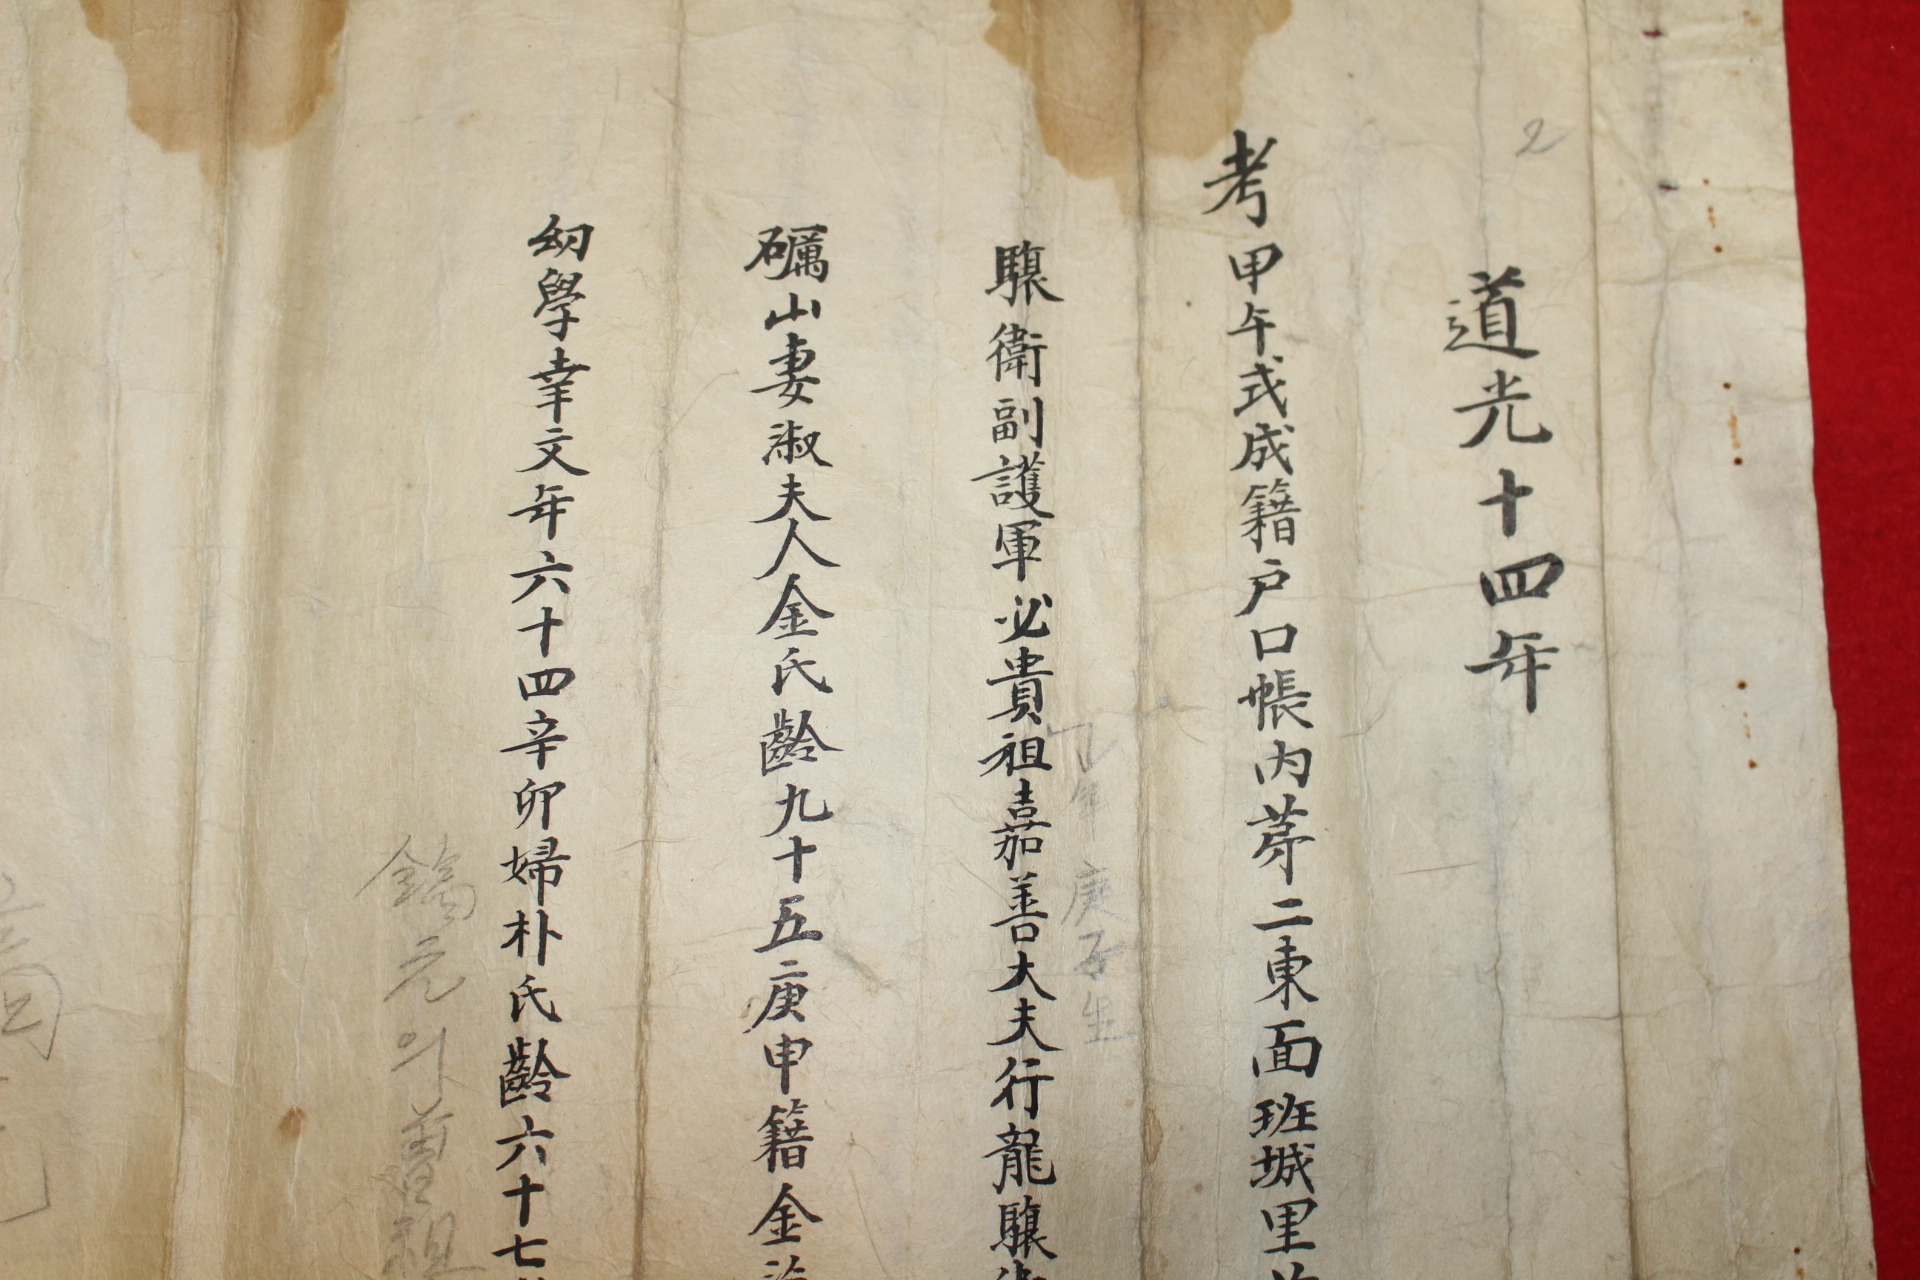 2
道光十四年
考甲午式成籍戶口帳內第二東面班城里
驤衛副護軍必貴祖嘉善大夫行龍驤衛
庚子生
礪山妻淑夫人金氏齡九十五庚申籍金海
幼學幸文年六十四辛卯婦朴氏齡六十七
鎬元의曽祖